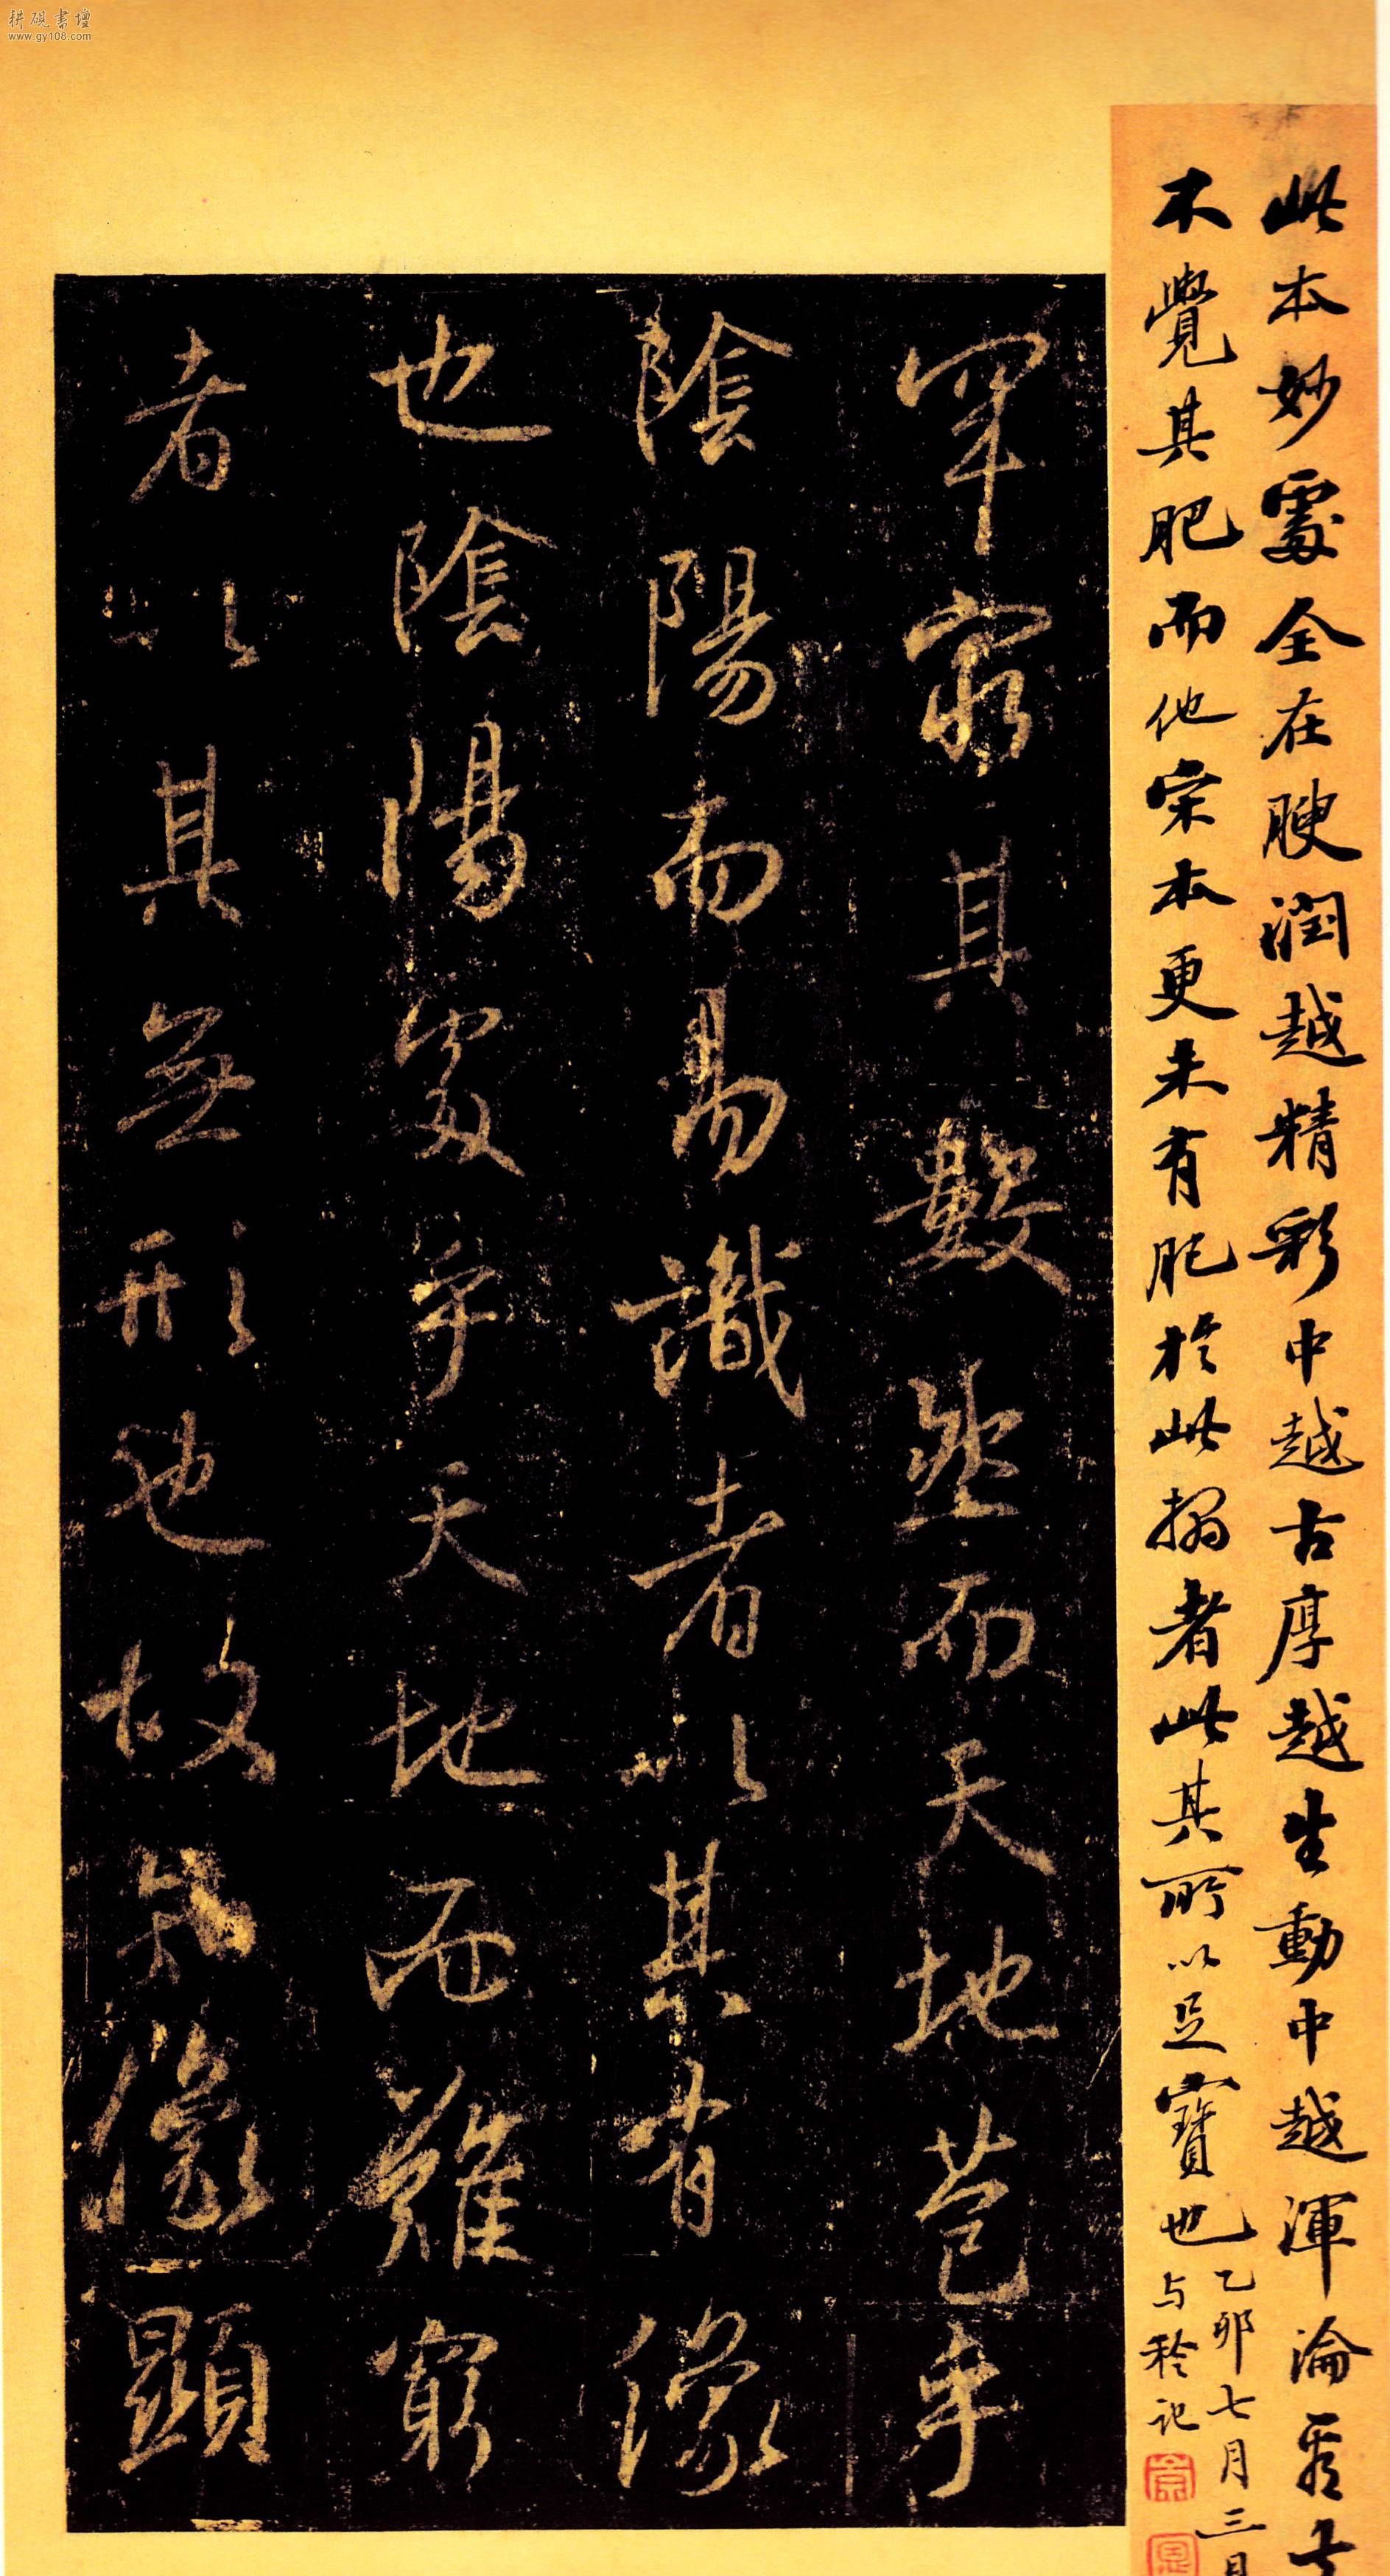 耕硯書壇
www.gy108.com
此本妙處全在腴潤越精彩中越古厚越生動中越渾淪看去
不覺其肥而他宋本更未有肥於此搨者此其所以足寶也
乙卯七月三日
与稑記
罕窮其數然而天地苞乎
陰陽而易識者以其有像
也陰陽處乎天地而難窮
者以其無形也故知像顯